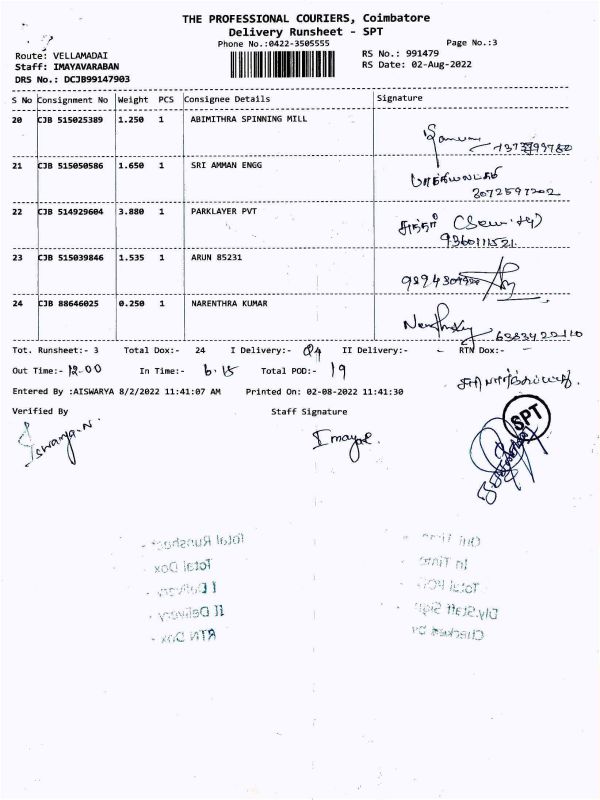 THE PROFESSIONAL COURIERS, Coimbatore
Delivery Runsheet - SPT
Phone No.:0422-3505555 Page No.:3
Route: VELLAMADAI RS No.: 991479
Staff: IMAYAVARABAN RS Date: 02-Aug-2022
DRS No.: DCJB99147903
S No Consignment No Weight PCS Consignee Details Signature
20 CJB 515025389 1.250 1 ABIMITHRA SPINNING MILL
21 CJB 515050586 1.650 1 SRI AMMAN ENGG
3072597202
22 CJB 514929604 3.880 1 PARKLAYER PVT
9360111521
23 CJB 515039846 1.535 1 ARUN 85231
24 CJB 88646025 0.250 1 NARENTHRA KUMAR
Tot. Runsheet:- 3 Total Dox:- 24 I Delivery:- 24 II Delivery:- - RTN Dox:-
Out Time:- 12.00 In Time:- 6.15 Total POD:- 19
Entered By :AISWARYA 8/2/2022 11:41:07 AM Printed On: 02-08-2022 11:41:30
Verified By Staff Signature
Iswarya.N Imaya
SPT
Total Runsheet - Out Time
Total Dox In Time
I Delivery - Total POD
II Delivery - Dly.Staff Sign
RTN Dox - Checked by